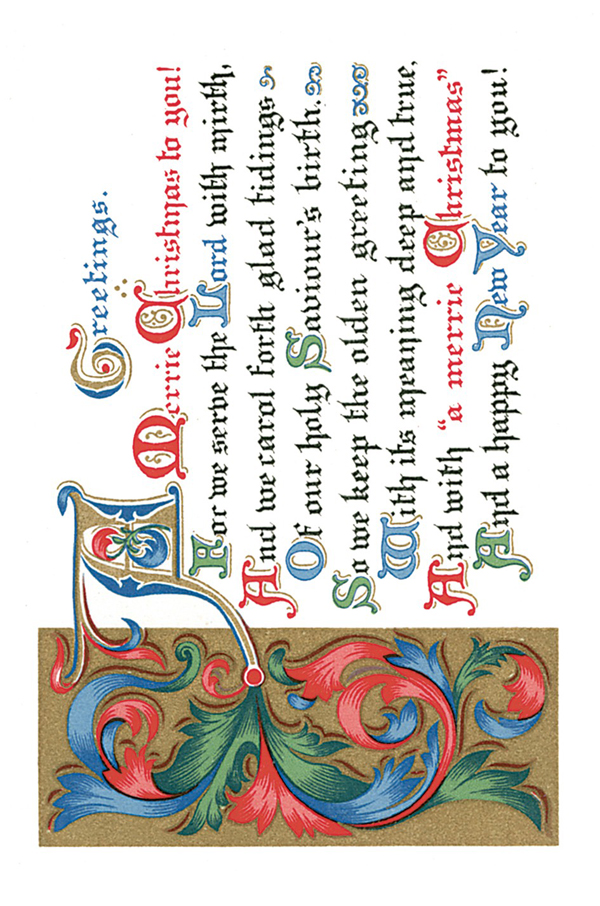 Greetings.
A Merrie Christmas to you!
For we serve the Lord with mirth,
And we carol forth glad tidings
Of our holy Saviour's birth.
So we keep the olden greeting
With its meaning deep and true,
And with "a merrie Christmas"
And a happy New Year to you!